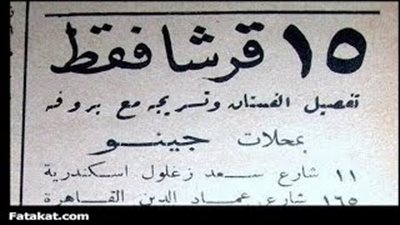 ١٥ قرشا فقط
تفصيل الفستان وتسريجه مع بروفه
بمحلات جينو
١١ شارع سعد زغلول اسكندرية
١٦٥ شارع عماد الدين القاهرة
Fatakat.com